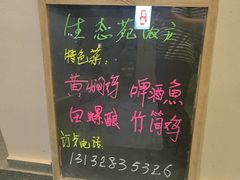 生态苑饭庄
特色菜:
黄焖鸡 啤酒鱼
田螺酿 竹筒鸡
订餐电话
13132835326